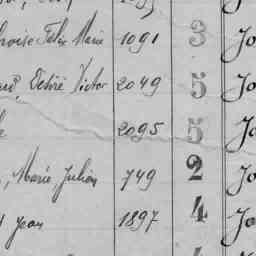 Félix Marie 1091 3 Jo
Désiré Victor 2049 5 Jo
2095 5 Jo
, Marie, Julien 749 2 Jo
Jean 1897 4 Jo